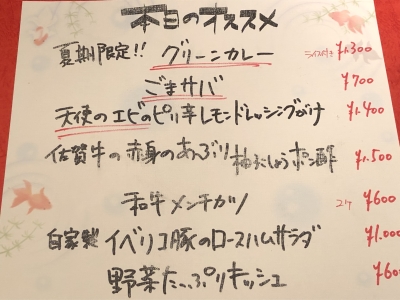 本日のオススメ
夏期限定!! グリーンカレー ライス付き ¥1.300
ごまサバ ¥700
天使のエビのピリ辛レモンドレッシングがけ ¥1.400
佐賀牛の赤身のあぶり 柚子こしょうポン酢 ¥1.500
和牛メンチカツ 2ケ ¥600
自家製 イベリコ豚のロースハムサラダ ¥1.000
野菜たっぷりキッシュ ¥600